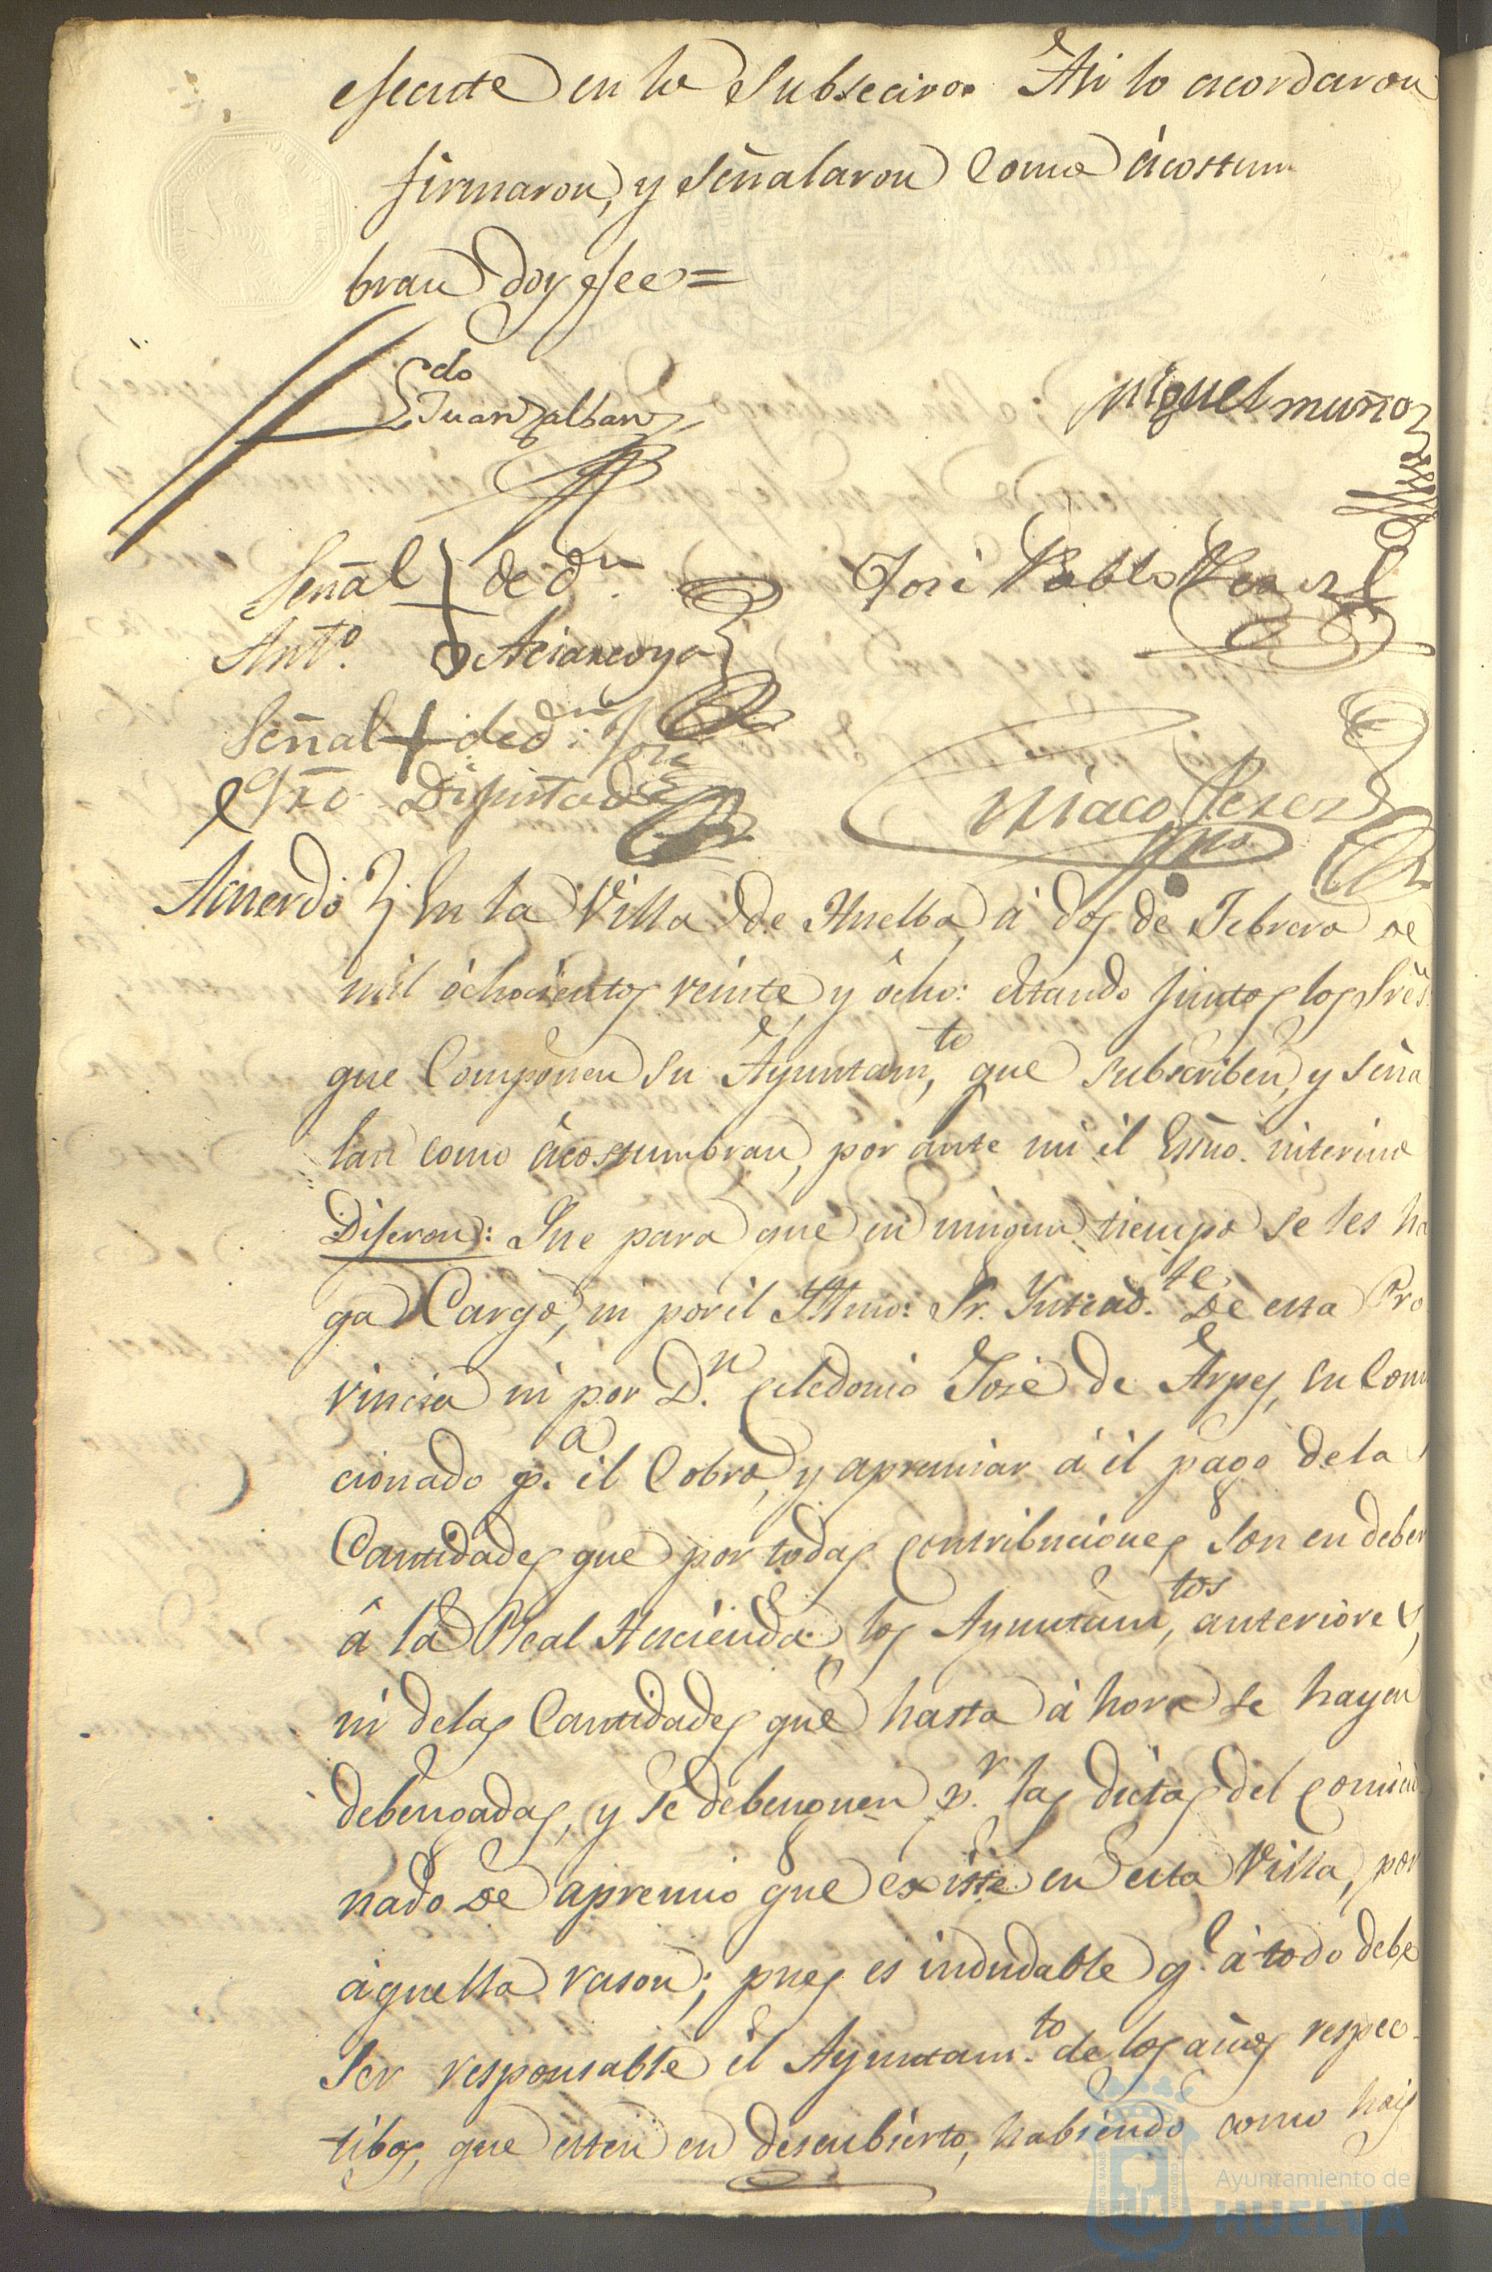 efecute en lo Subsecivo. Asi lo acordaron
firmaron, y señalaron como àcostum
bran doy fee=
Ldo
Juan Zalban
Miguel muñoz
Señal de dn.
Josè Pablo
Anto.
Señal de dn. José
Diputado
Perez
Acuerdo En la Villa de Huelba, à dos de Febrero de
mil òchocientos veinte y ôcho: estando juntos los Sres.
que Componen su Ayuntamto, que subscriben, y seña
lan como àcostumbran, por ante mi èl Essno. interino
Diseron: Que para que en ningun tiempo se les ha
ga Cargo, ni por èl Yllmo: Sr. Yntend.te de esta Pro
vincia ni por Dn. Celedonio Josè de Arpes, su Comi
cionado pa. èl Cobro, y apremiar á èl pago de la
Cantidades que por todas contribuciones son en deber
â la Real Hacienda los Ayuntamtos, anteriores,
ni delas Cantidades que hasta à hora se hayen
debengadas, y se debenguen pr. las dietas del Comicio
nado de apremio que existe en esta Villa, por
àquella rason; pues es indudable q.e à todo debe
Ser responsable èl Ayuntam.to de los años respec-
tibos, que esten en descubierto, habiendo como hais
Ayuntamiento de
HUELVA